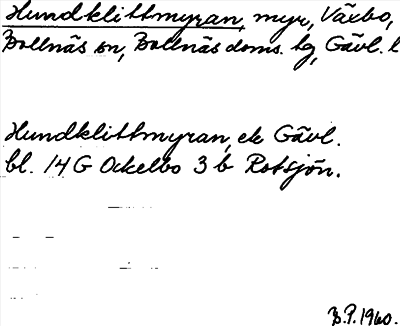 Hundklittmyran, myr, Växbo,
Bollnäs sn, Bollnäs doms. tg, Gävl. l
Hundklittmyran, ek Gävl.
bl. 14 G Ockelbo 3 b Rotsjön.
B.P. 1960.